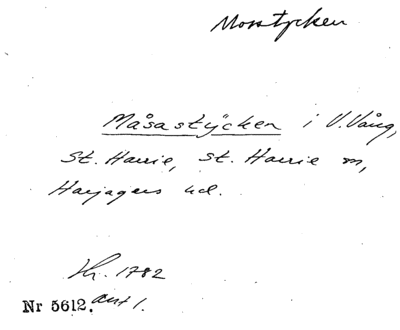 Mosstycken
Måsastÿcken i V. Vång,
St. Harrie, St. Harrie sn,
Harjagers hd.
Hr. 1782
Nr 5612. akt 1.